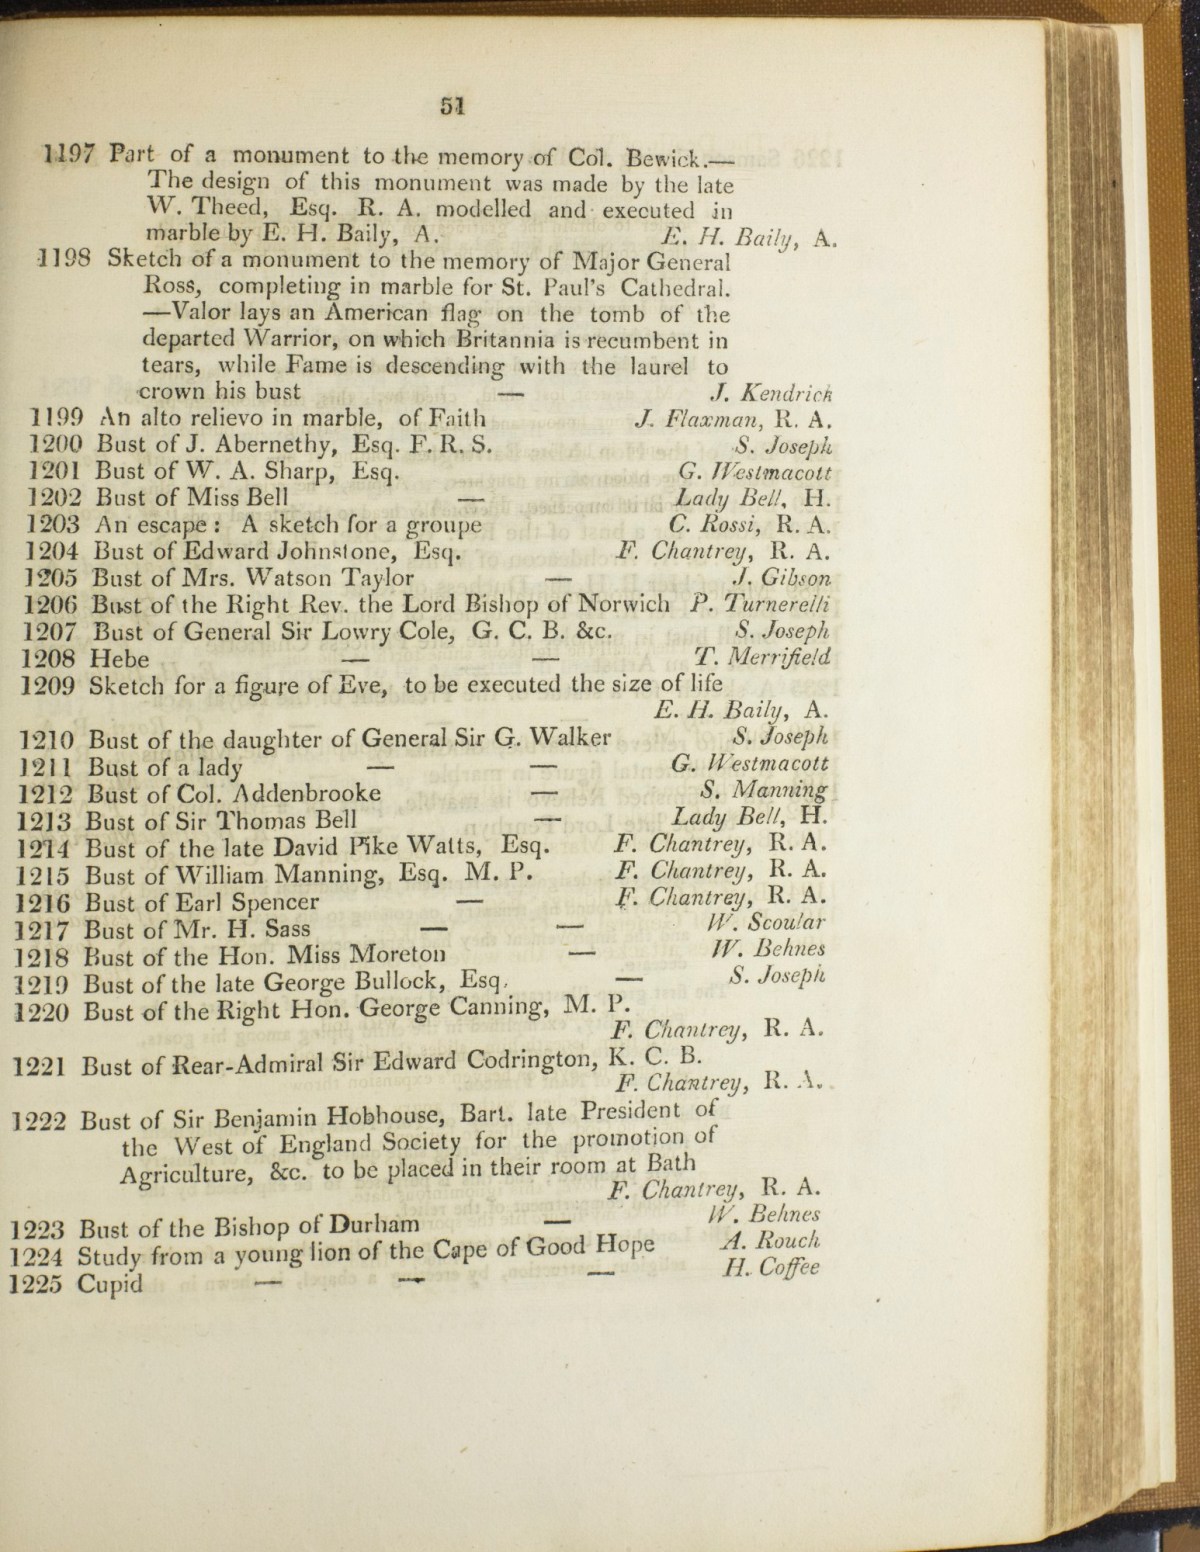 51
1197 Part of a monument to the memory of Col. Bewick.—
The design of this monument was made by the late
W. Theed, Esq. R. A. modelled and executed in
marble by E. H. Baily, A. E. H. Baily, A.
1198 Sketch of a monument to the memory of Major General
Ross, completing in marble for St. Paul's Cathedral.
—Valor lays an American flag on the tomb of the
departed Warrior, on which Britannia is recumbent in
tears, while Fame is descending with the laurel to
crown his bust — J. Kendrick
1199 An alto relievo in marble, of Faith J. Flaxman, R. A.
1200 Bust of J. Abernethy, Esq. F. R. S. S. Joseph
1201 Bust of W. A. Sharp, Esq. G. Westmacott
1202 Bust of Miss Bell — Lady Bell, H.
1203 An escape : A sketch for a groupe C. Rossi, R. A.
1204 Bust of Edward Johnstone, Esq. F. Chantrey, R. A.
1205 Bust of Mrs. Watson Taylor — J. Gibson
1206 Bust of the Right Rev. the Lord Bishop of Norwich P. Turnerelli
1207 Bust of General Sir Lowry Cole, G. C. B. &c. S. Joseph
1208 Hebe — — T. Merrifield
1209 Sketch for a figure of Eve, to be executed the size of life
E. H. Baily, A.
1210 Bust of the daughter of General Sir G. Walker S. Joseph
1211 Bust of a lady — — G. Westmacott
1212 Bust of Col. Addenbrooke — S. Manning
1213 Bust of Sir Thomas Bell — Lady Bell, H.
1214 Bust of the late David Pike Watts, Esq. F. Chantrey, R. A.
1215 Bust of William Manning, Esq. M. P. F. Chantrey, R. A.
1216 Bust of Earl Spencer — F. Chantrey, R. A.
1217 Bust of Mr. H. Sass — — W. Scoular
1218 Bust of the Hon. Miss Moreton — W. Behnes
1219 Bust of the late George Bullock, Esq. — S. Joseph
1220 Bust of the Right Hon. George Canning, M. P.
F. Chantrey, R. A.
1221 Bust of Rear-Admiral Sir Edward Codrington, K. C. B.
F. Chantrey, R. A.
1222 Bust of Sir Benjamin Hobhouse, Bart. late President of
the West of England Society for the promotion of
Agriculture, &c. to be placed in their room at Bath
F. Chantrey, R. A.
1223 Bust of the Bishop of Durham — W. Behnes
1224 Study from a young lion of the Cape of Good Hope A. Rouch
1225 Cupid — — — H. Coffee